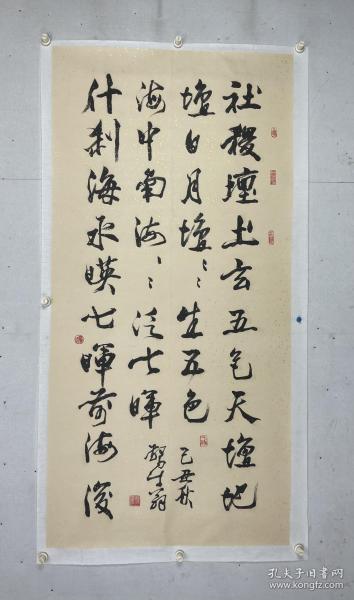 社稷壇土玄五色天壇地
壇日月壇〻〻生五色
己丑秋
什刹海永暎七暉前海後
海中南海〻〻泛七暉
生翁
孔夫子旧书网